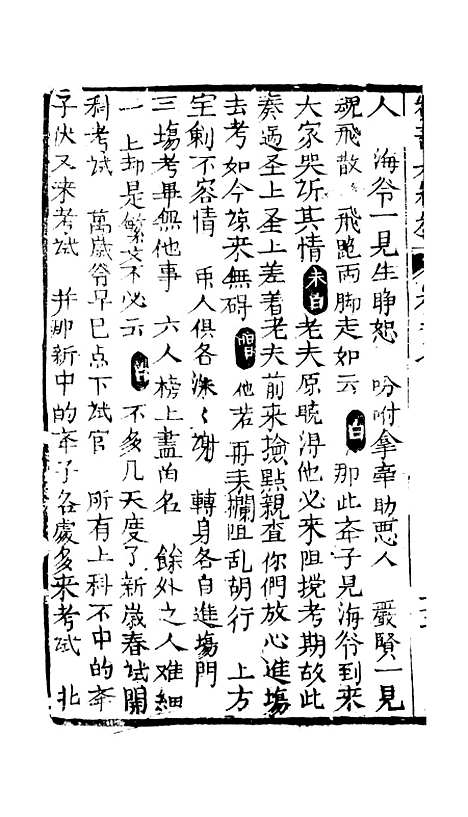 人 海爷一見生睁恕 吩咐拿牽助悪人 嚴賢一見
魂飛散 飛跑両脚走如云 白 那些斈子見海爷到來
大家哭訴其情 末白 老夫原曉淂他必来阻撹考期故此
奏過圣上圣上差着老夫前来撿點親查你們放心進塲
去考如今諒来無碍 唱 他若再来攔阻乱胡行 上方
宝剣不容情 䘚人俱各深〻謝 轉身各自進塲門
三塲考畢無他事 六人榜上盡茴名 餘外之人难細
一 上却是繁文不必云 白 不多几天度了新歲春试開
科考試 萬歲爷早已点下试官 所有上科不中的斈
子伏又来考試 并那新中的斈子各處多来考試 北